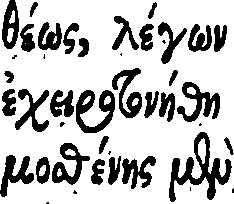 θέως, λέγων
ἐχειροτονήθη
μοσθένης μὲν